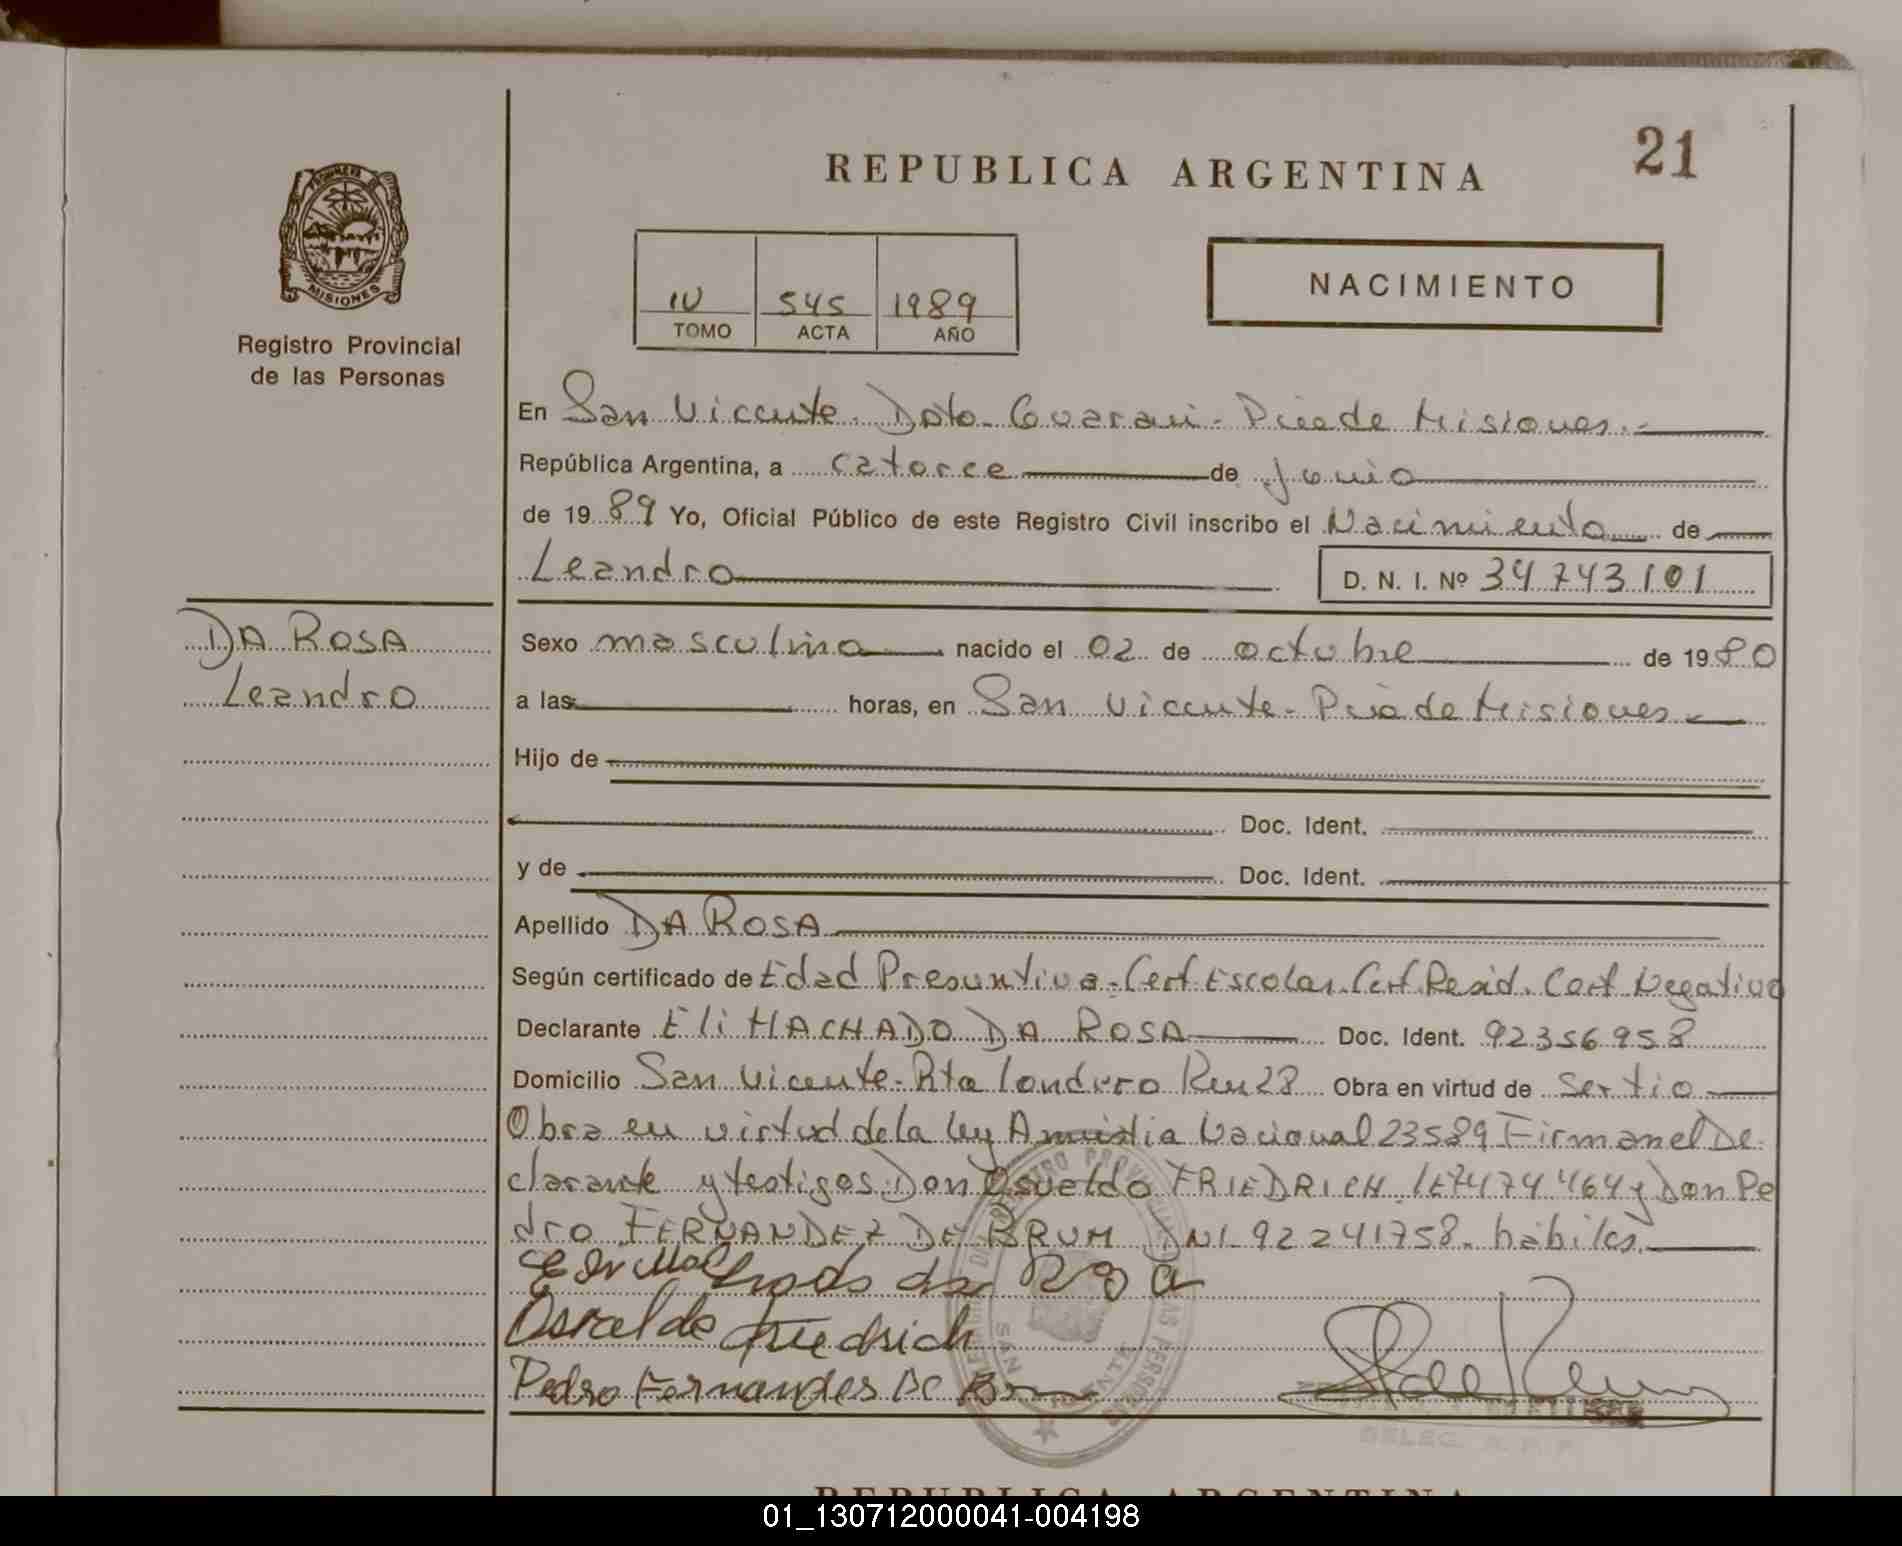 21
REPUBLICA ARGENTINA
MISIONES
Registro Provincial
de las Personas
IV 545 1989
TOMO ACTA AÑO
NACIMIENTO
En San Vicente. Dpto. Guarani. Pcia de Misiones.-
República Argentina, a catorce de junio
de 1989 Yo, Oficial Público de este Registro Civil inscribo el Nacimiento de
Leandro D. N. I. Nº 34743101
DA ROSA
Leandro
Sexo masculino nacido el 02 de octubre de 1980
a las horas, en San Vicente. Pcia de Misiones
Hijo de
Doc. Ident.
y de Doc. Ident.
Apellido DA ROSA
Según certificado de Edad Presuntiva. Cert Escolar. Cert Resid. Cert Negativo
Declarante Eli MACHADO DA ROSA Doc. Ident. 92356958
Domicilio San Vicente. Rta Londero Km 28 Obra en virtud de
Obra en virtud de la Ley Amnistia Nacional 23589 Firman el De
clarante y testigos: Don Osvaldo FRIEDRICH. LE7474464 y Don Pe
dro FERNANDEZ DE BRUM DNI. 92241758. hábiles.
da Roza
Osvaldo Friedrich
Pedro Fernandes De
REPUBLICA ARGENTINA
01_130712000041-004198